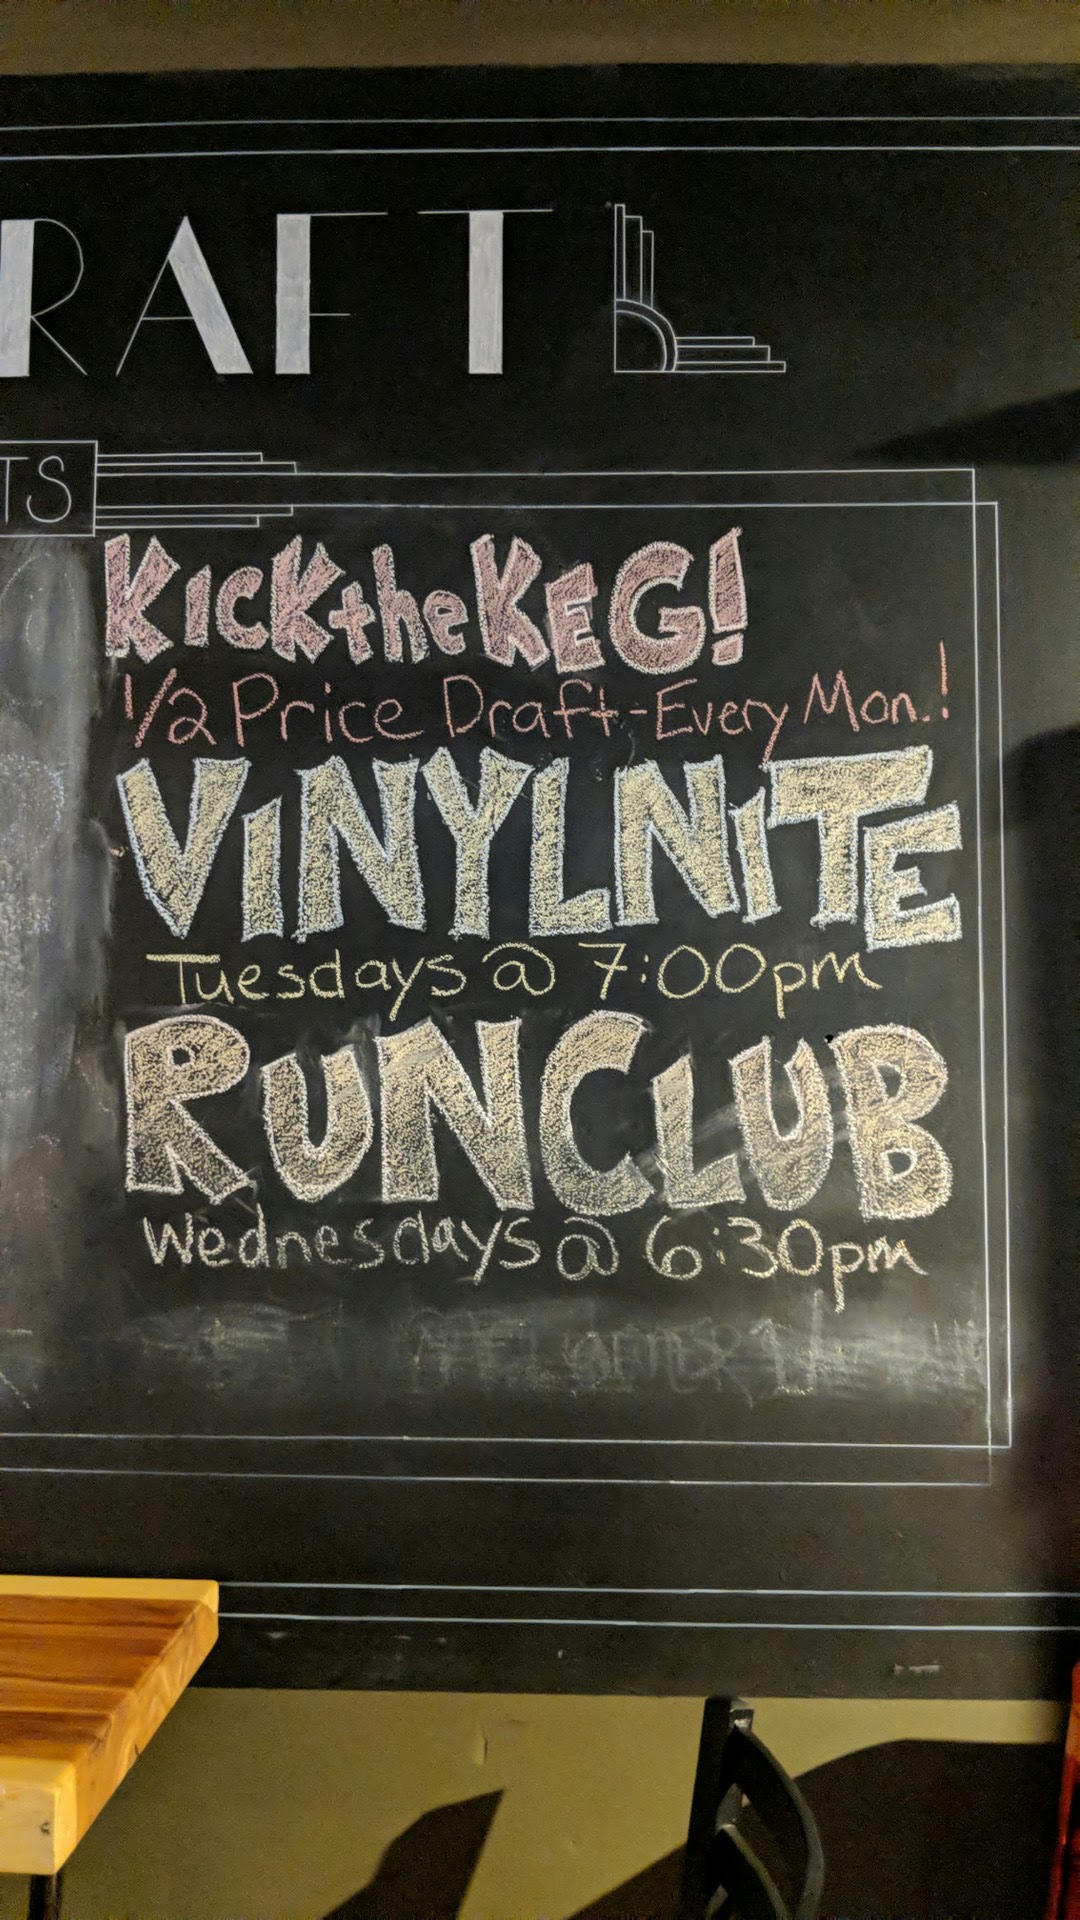 RAFT
TS
KICK the KEG!
1/2 Price Draft - Every Mon.!
ViNYL NiTE
Tuesdays @ 7:00pm
RUN CLUB
Wednesdays @ 6:30pm